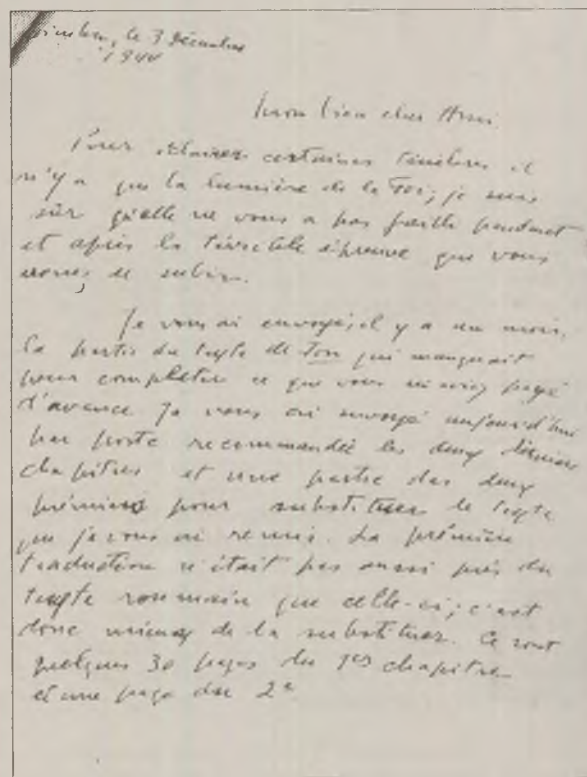 le 3 Décembre
1944
Mon bien cher Ami
Pour éclairer certaines ténèbres il
n'y a que la lumière de la Foi; je suis
sûr qu'elle ne vous a pas faille pendant
et après la terrible épreuve que vous
venez de subir.
Je vous ai envoyé, il y a un mois,
la partie du texte de qui manquait
pour completer ce que vous m'aviez payé
d'avance. Je vous ai envoyé aujourd'hui
par poste recommandée les deux derniers
chapitres et une partie des deux
prémiers pour substituer le texte
que je vous ai remis. La prémière
traduction n'était pas aussi près du
texte roumain que celle-ci; c'est
donc mieux de la substituer. Ce sont
quelques 30 pages du 1er chapitre
et une page du 2e